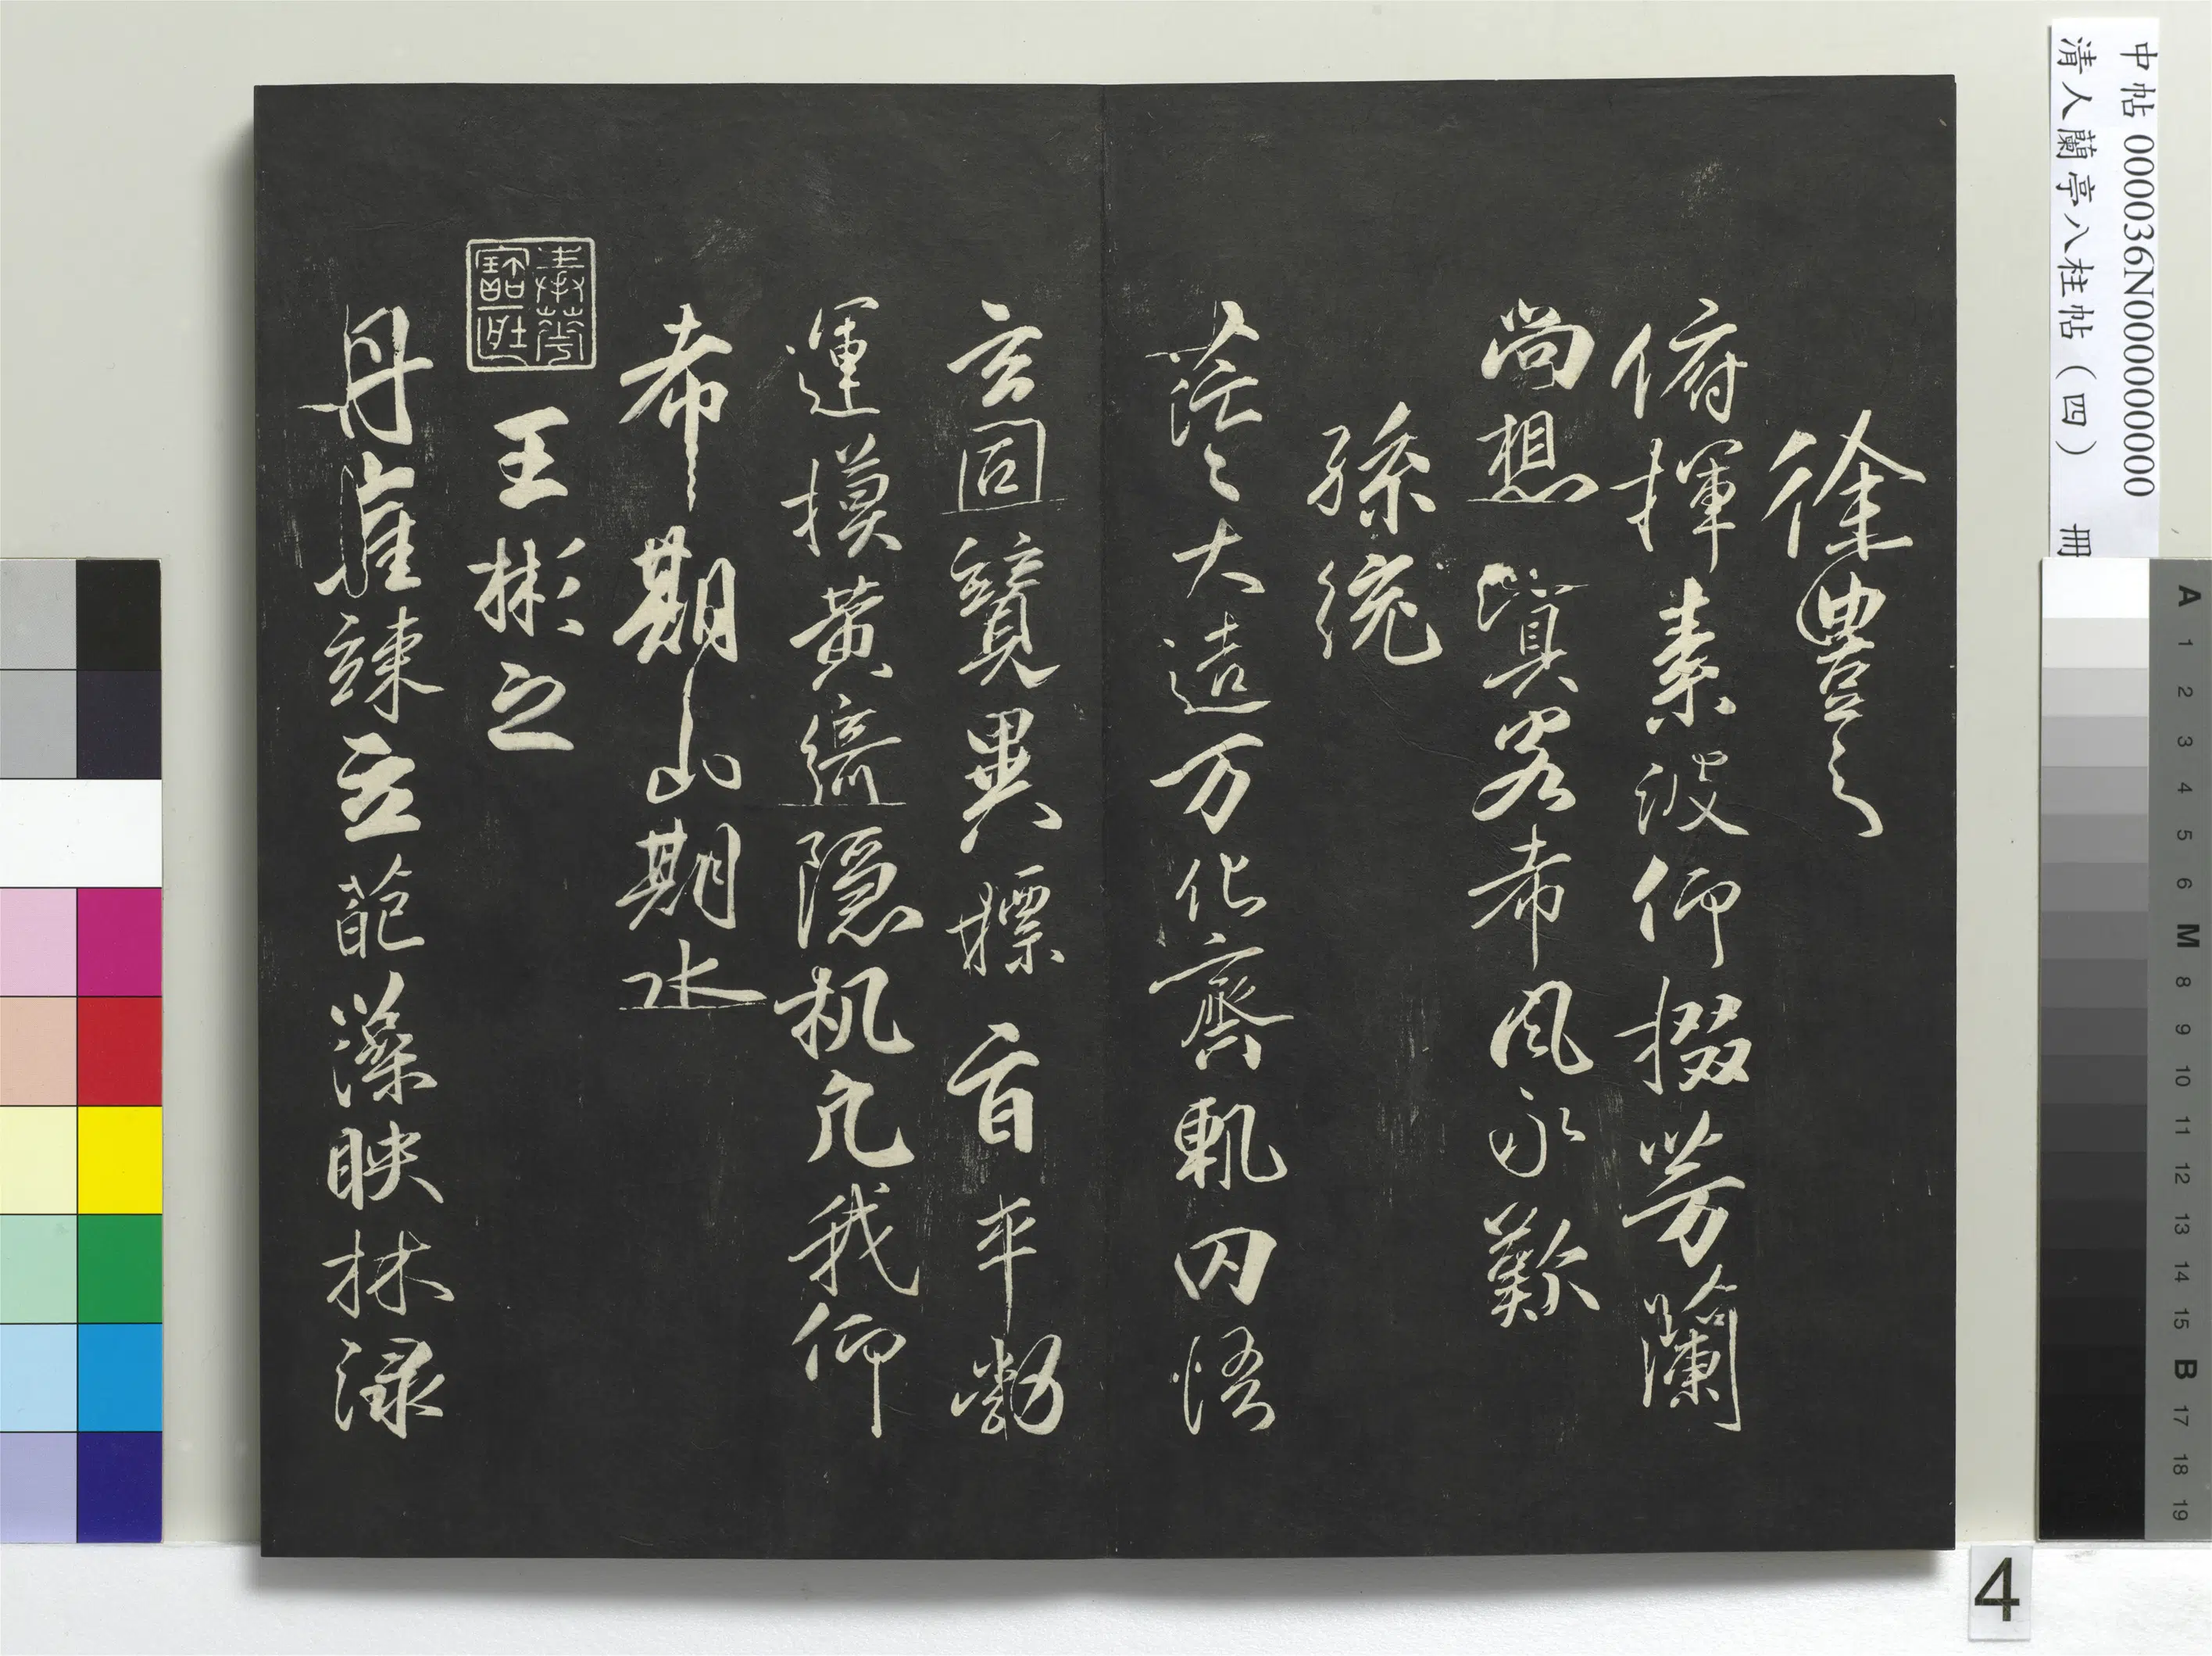 中帖 000036N000000000
清人蘭亭八柱帖（四） 冊
徐豐之
俯揮素波仰掇芳蘭
尚想客希風永歎
孫統
茫々大造万化齊軌罔悟
玄同競異標旨平勃
運摸黄綺隐机凢我仰
希期山期水
王彬之
丹崖竦立葩藻映林渌
A 1 2 3 4 5 6 M 8 9 10 11 12 13 14 15 B 17 18 19
4